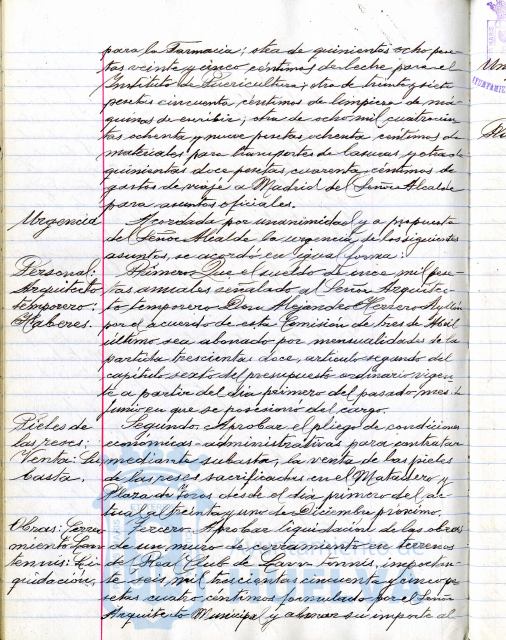 para la Farmacia; otra de quinientas ocho pese-
tas veinte y cinco céntimos de leche para el
Instituto de Puericultura; otra de treinta y siete
pesetas cincuenta céntimos de limpieza de má-
quinas de escribir; otra de ocho mil cuatrocien-
tas ochenta y nueve pesetas ochenta céntimos de
materiales para transportes de basuras y otra de
quinientas doce pesetas cuarenta céntimos de
gastos de viaje a Madrid del Señor Alcalde
para asuntos oficiales.
Urgencia
Acordada por unanimidad y a propuesta
del Señor Alcalde la urgencia de los siguientes
asuntos, se acordó en igual forma:
Personal:
Arquitecto
temporero:
Haberes.
Primero. Que el sueldo de once mil pese-
tas anuales señalado al Señor Arquitec-
to temporero Don Alejandro Herrero Ayllón
por el acuerdo de esta Comisión de tres de Abril
último sea abonado por mensualidades de la
partida trescientas doce, artículo segundo del
capítulo sexto del presupuesto ordinario vigen-
te a partir del día primero del pasado mes de
Junio en que se posesionó del cargo.
Pieles de
las reses:
Venta: Su-
basta.
Segundo. Aprobar el pliego de condiciones
económicas-administrativas para contratar
mediante subasta, la venta de las pieles
de las reses sacrificadas en el Matadero y
Plaza de Toros desde el día primero del ac-
tual al treinta y uno de Diciembre próximo.
Obras: Cerra-
miento Lawn
tennis: Li-
quidación.
Tercero. Aprobar liquidación de las obras
de un muro de cerramiento en terrenos
del Real Club de Lawn Tennis, importan-
te seis mil trescientas cincuenta y cinco pe-
setas cuatro céntimos formulado por el Señor
Arquitecto Municipal y abonar su importe al